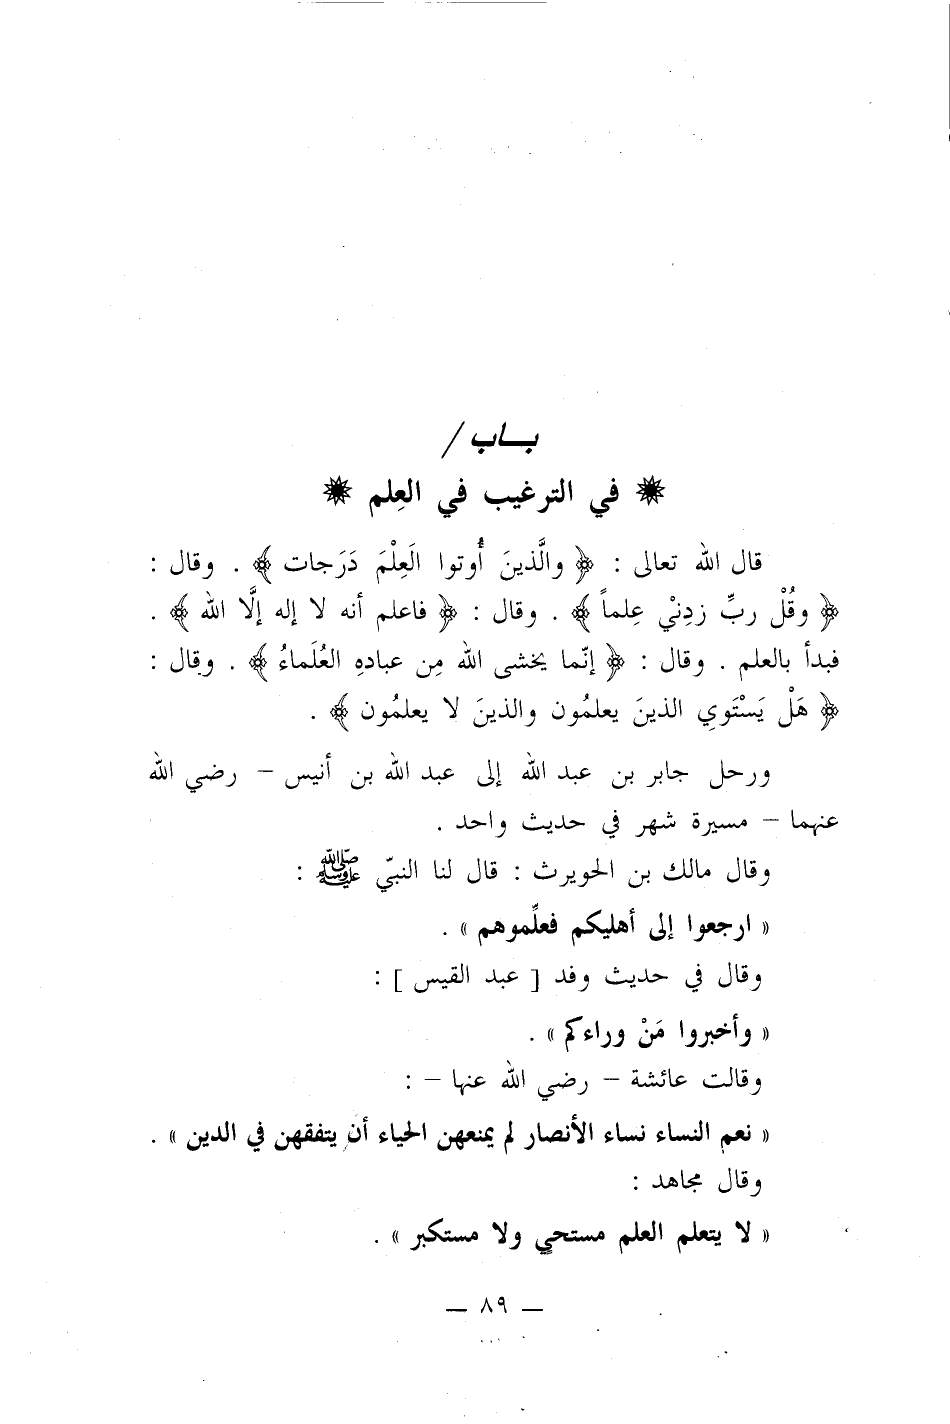 بـــاب /
❋ في الترغيب في العِلم ❋
قال الله تعالى : ﴿ والَّذينَ أُوتوا العِلْمَ دَرَجات ﴾ . وقال :
﴿ وقُلْ ربِّ زدِنيْ عِلماً ﴾ . وقال : ﴿ فاعلم أنه لا إله إلَّا الله ﴾ .
فبدأ بالعلم . وقال : ﴿ إنّما يخشى الله مِن عبادهِ العُلَماءُ ﴾ . وقال :
﴿ هَلْ يَسْتَوِي الذينَ يعلمُون والذينَ لا يعلمُون ﴾ .
ورحل جابر بن عبد الله إلى عبد الله بن أنيس – رضي الله
عنهما – مسيرة شهر في حديث واحد .
وقال مالك بن الحويرث : قال لنا النبيّ ﷺ :
« ارجعوا إلى أهليكم فعلِّموهم » .
وقال في حديث وفد [ عبد القيس ] :
« وأخبروا مَنْ وراءكم » .
وقالت عائشة – رضي الله عنها – :
« نعم النساء نساء الأنصار لم يمنعهن الحياء أن يتفقهن في الدين » .
وقال مجاهد :
« لا يتعلم العلم مستحي ولا مستكبر » .
— ٨٩ —